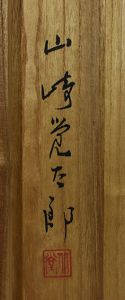 山崎覚太郎